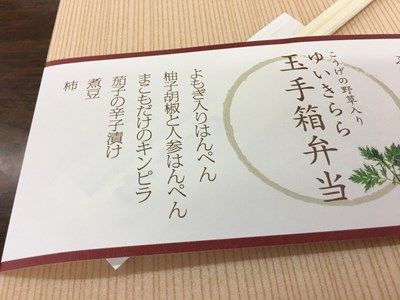 こうげの野草入り
ゆいきらら
玉手箱弁当
よもぎ入りはんぺん
柚子胡椒と人参はんぺん
まこもだけのキンピラ
茄子の辛子漬け
煮豆
柿